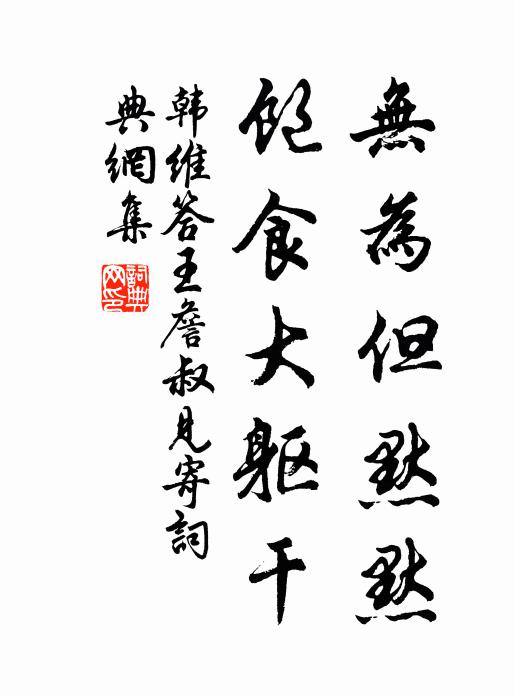 無為但默默
飽食大軀干
韩維答王詹叔見寄詞
典網集
詞典
网印